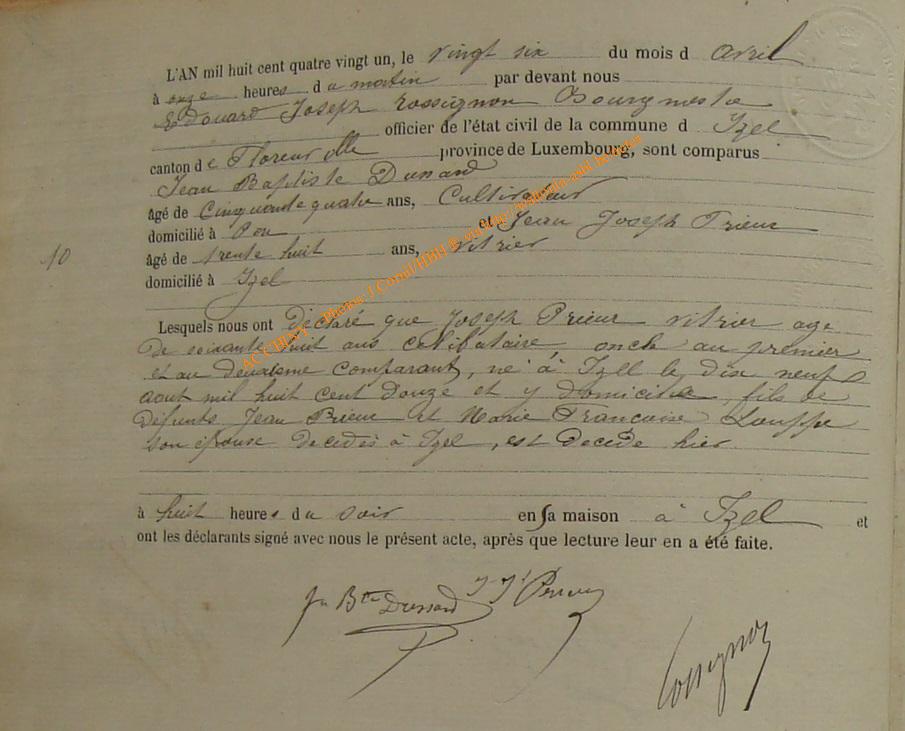 L'AN mil huit cent quatre vingt un, le vingt six du mois d avril
à onze heures du matin par devant nous
Edouard Joseph Rossignon Bourgmestre
officier de l'état civil de la commune d Izel
canton de Florenville province de Luxembourg, sont comparus
Jean Baptiste Dussard
âgé de Cinquante quatre ans, Cultivateur
domicilié à et Jean Joseph Prieur
âgé de trente huit ans, vitrier
domicilié à Izel
10
Lesquels nous ont déclaré que Joseph Prieur vitrier age
de soixante huit ans celibataire, oncle au premier
et au deuxieme comparant, né à Izel le dix neuf
aout mil huit cent Douze et y domicilié, fils de
défunts Jean Prieur et Marie Françoise Louppe
son épouse decedés à Izel, est décédé hier
à huit heures du soir en sa maison à Izel et
ont les déclarants signé avec nous le présent acte, après que lecture leur en a été faite.
Jn Bte Dussard J J Prieur
Rossignon